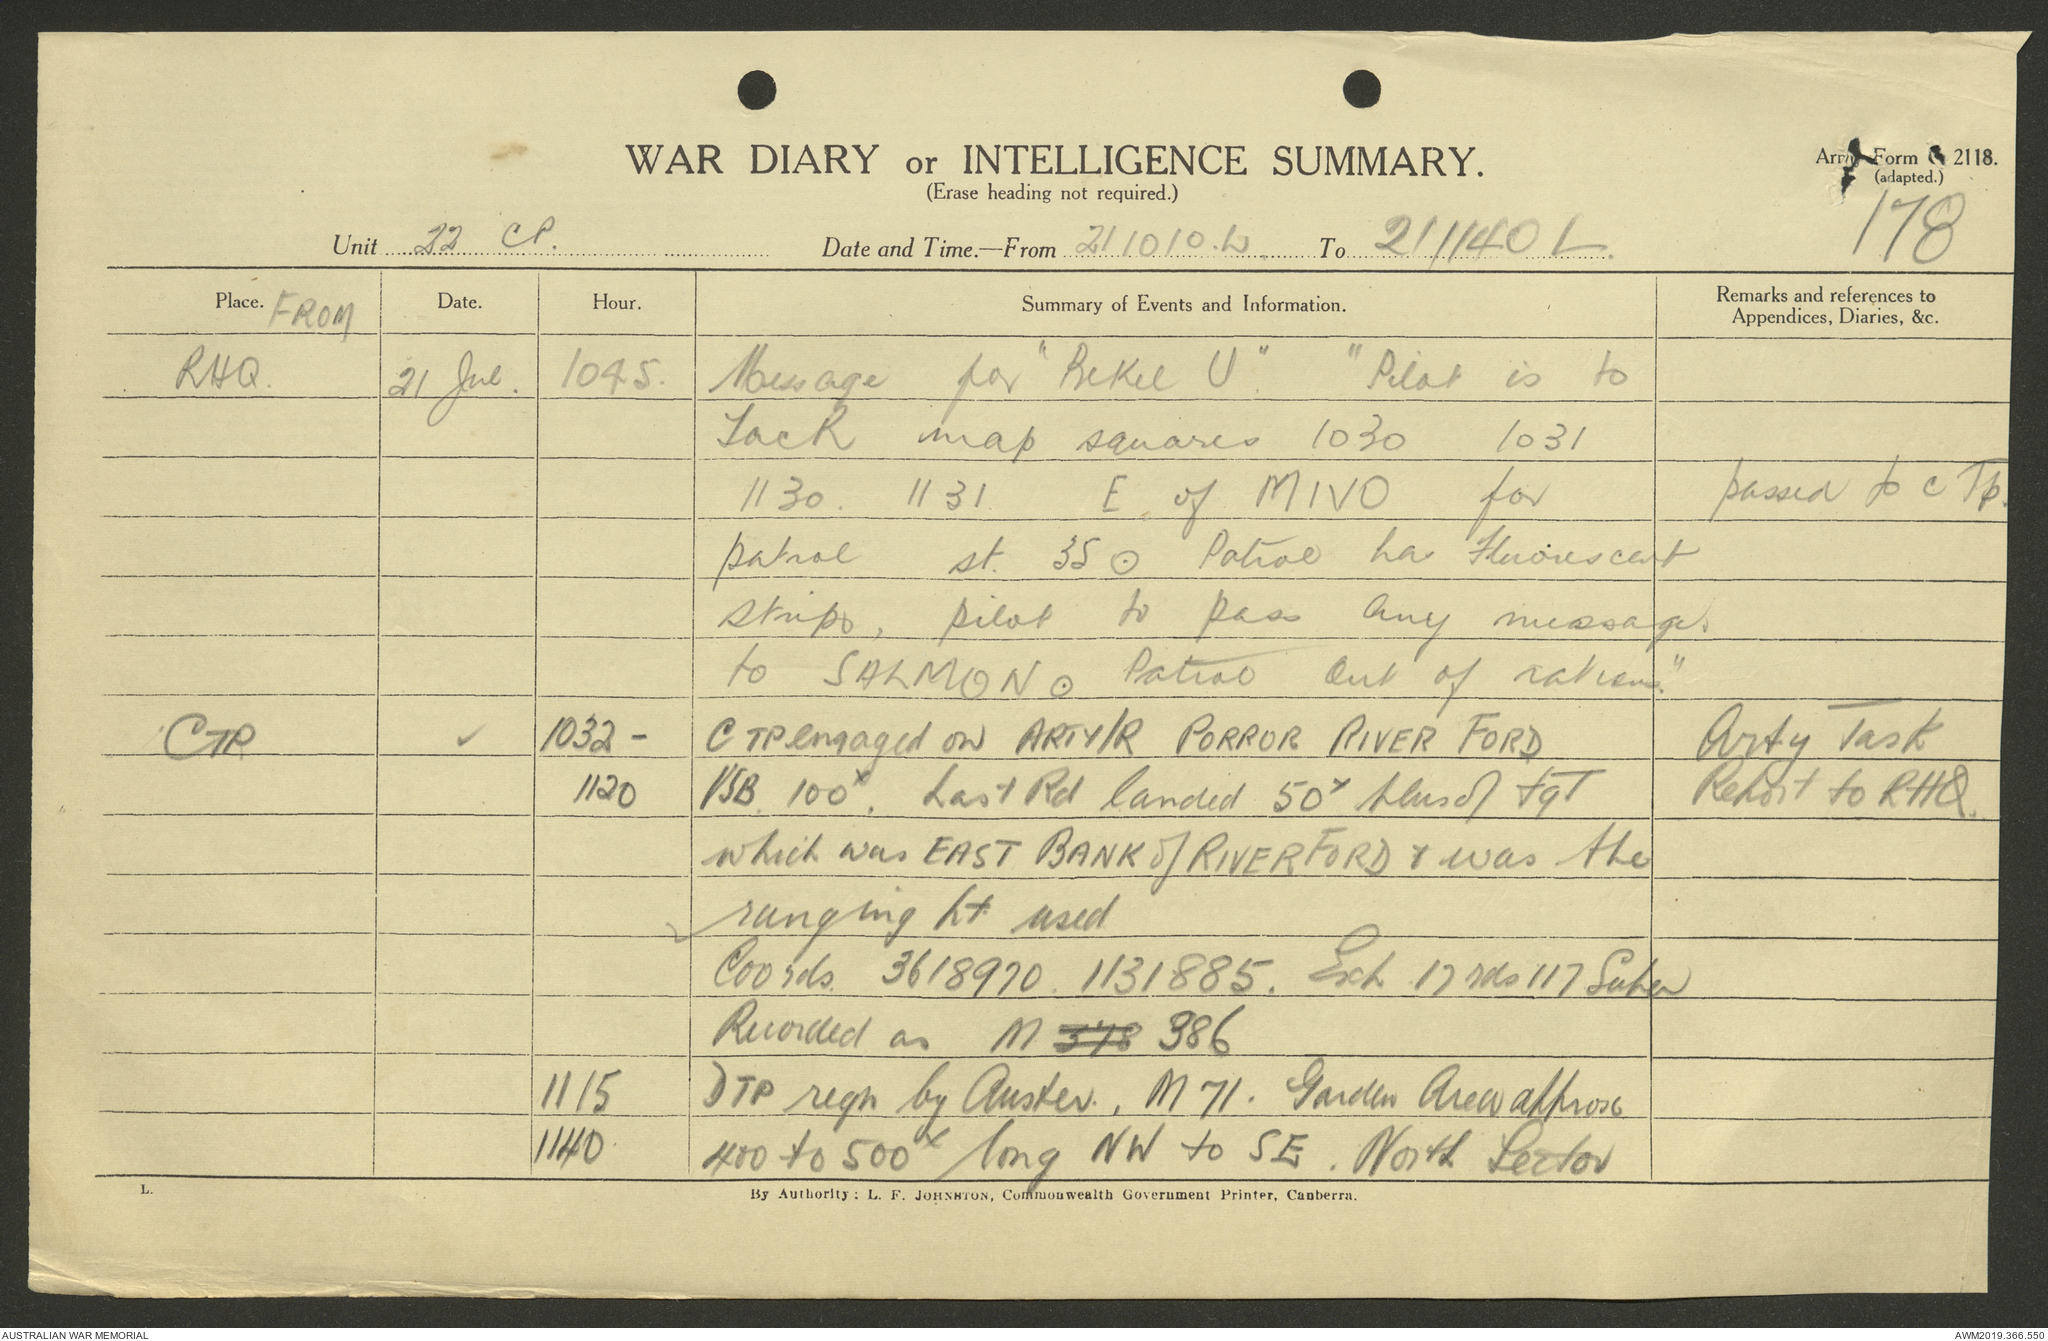 WAR DIARY or INTELLIGENCE SUMMARY.
(Erase heading not required.)
Army Form 2118.
(adapted.)
178
Unit 22 CP. Date and Time.—From 211010.L. To 211140 L.
Place. FROM Date. Hour. Summary of Events and Information. Remarks and references to Appendices, Diaries, &c.
RHQ. 21 Jul. 1045. Message for " U". "Pilot is to
map squares 1030 1031
1130. 1131 E of MIVO for passed to C Tp.
patrol st. 35 ⊙ Patrol has Fluorescent
strips, pilot to pass any message.
to SALMON ⊙ Patrol out of rations."
C TP ✓ 1032 - C TP engaged on ARTY/R PORROR RIVER FORD Arty Task
1120 VSB. 100x. Last Rd landed 50x plus of tgt Report to RHQ.
which was EAST BANK of RIVER FORD & was the
ranging pt used
Coords. 3618970. 1131885. Exh. 17 rds 117 Super
Recorded as M 378 386
1115 D TP regn by Auster. M 71. Garden Area approx
1140 400 to 500x long NW to SE. North Sector
L.
By Authority: L. F. JOHNSTON, Commonwealth Government Printer, Canberra.
AUSTRALIAN WAR MEMORIAL
AWM2019.366.550